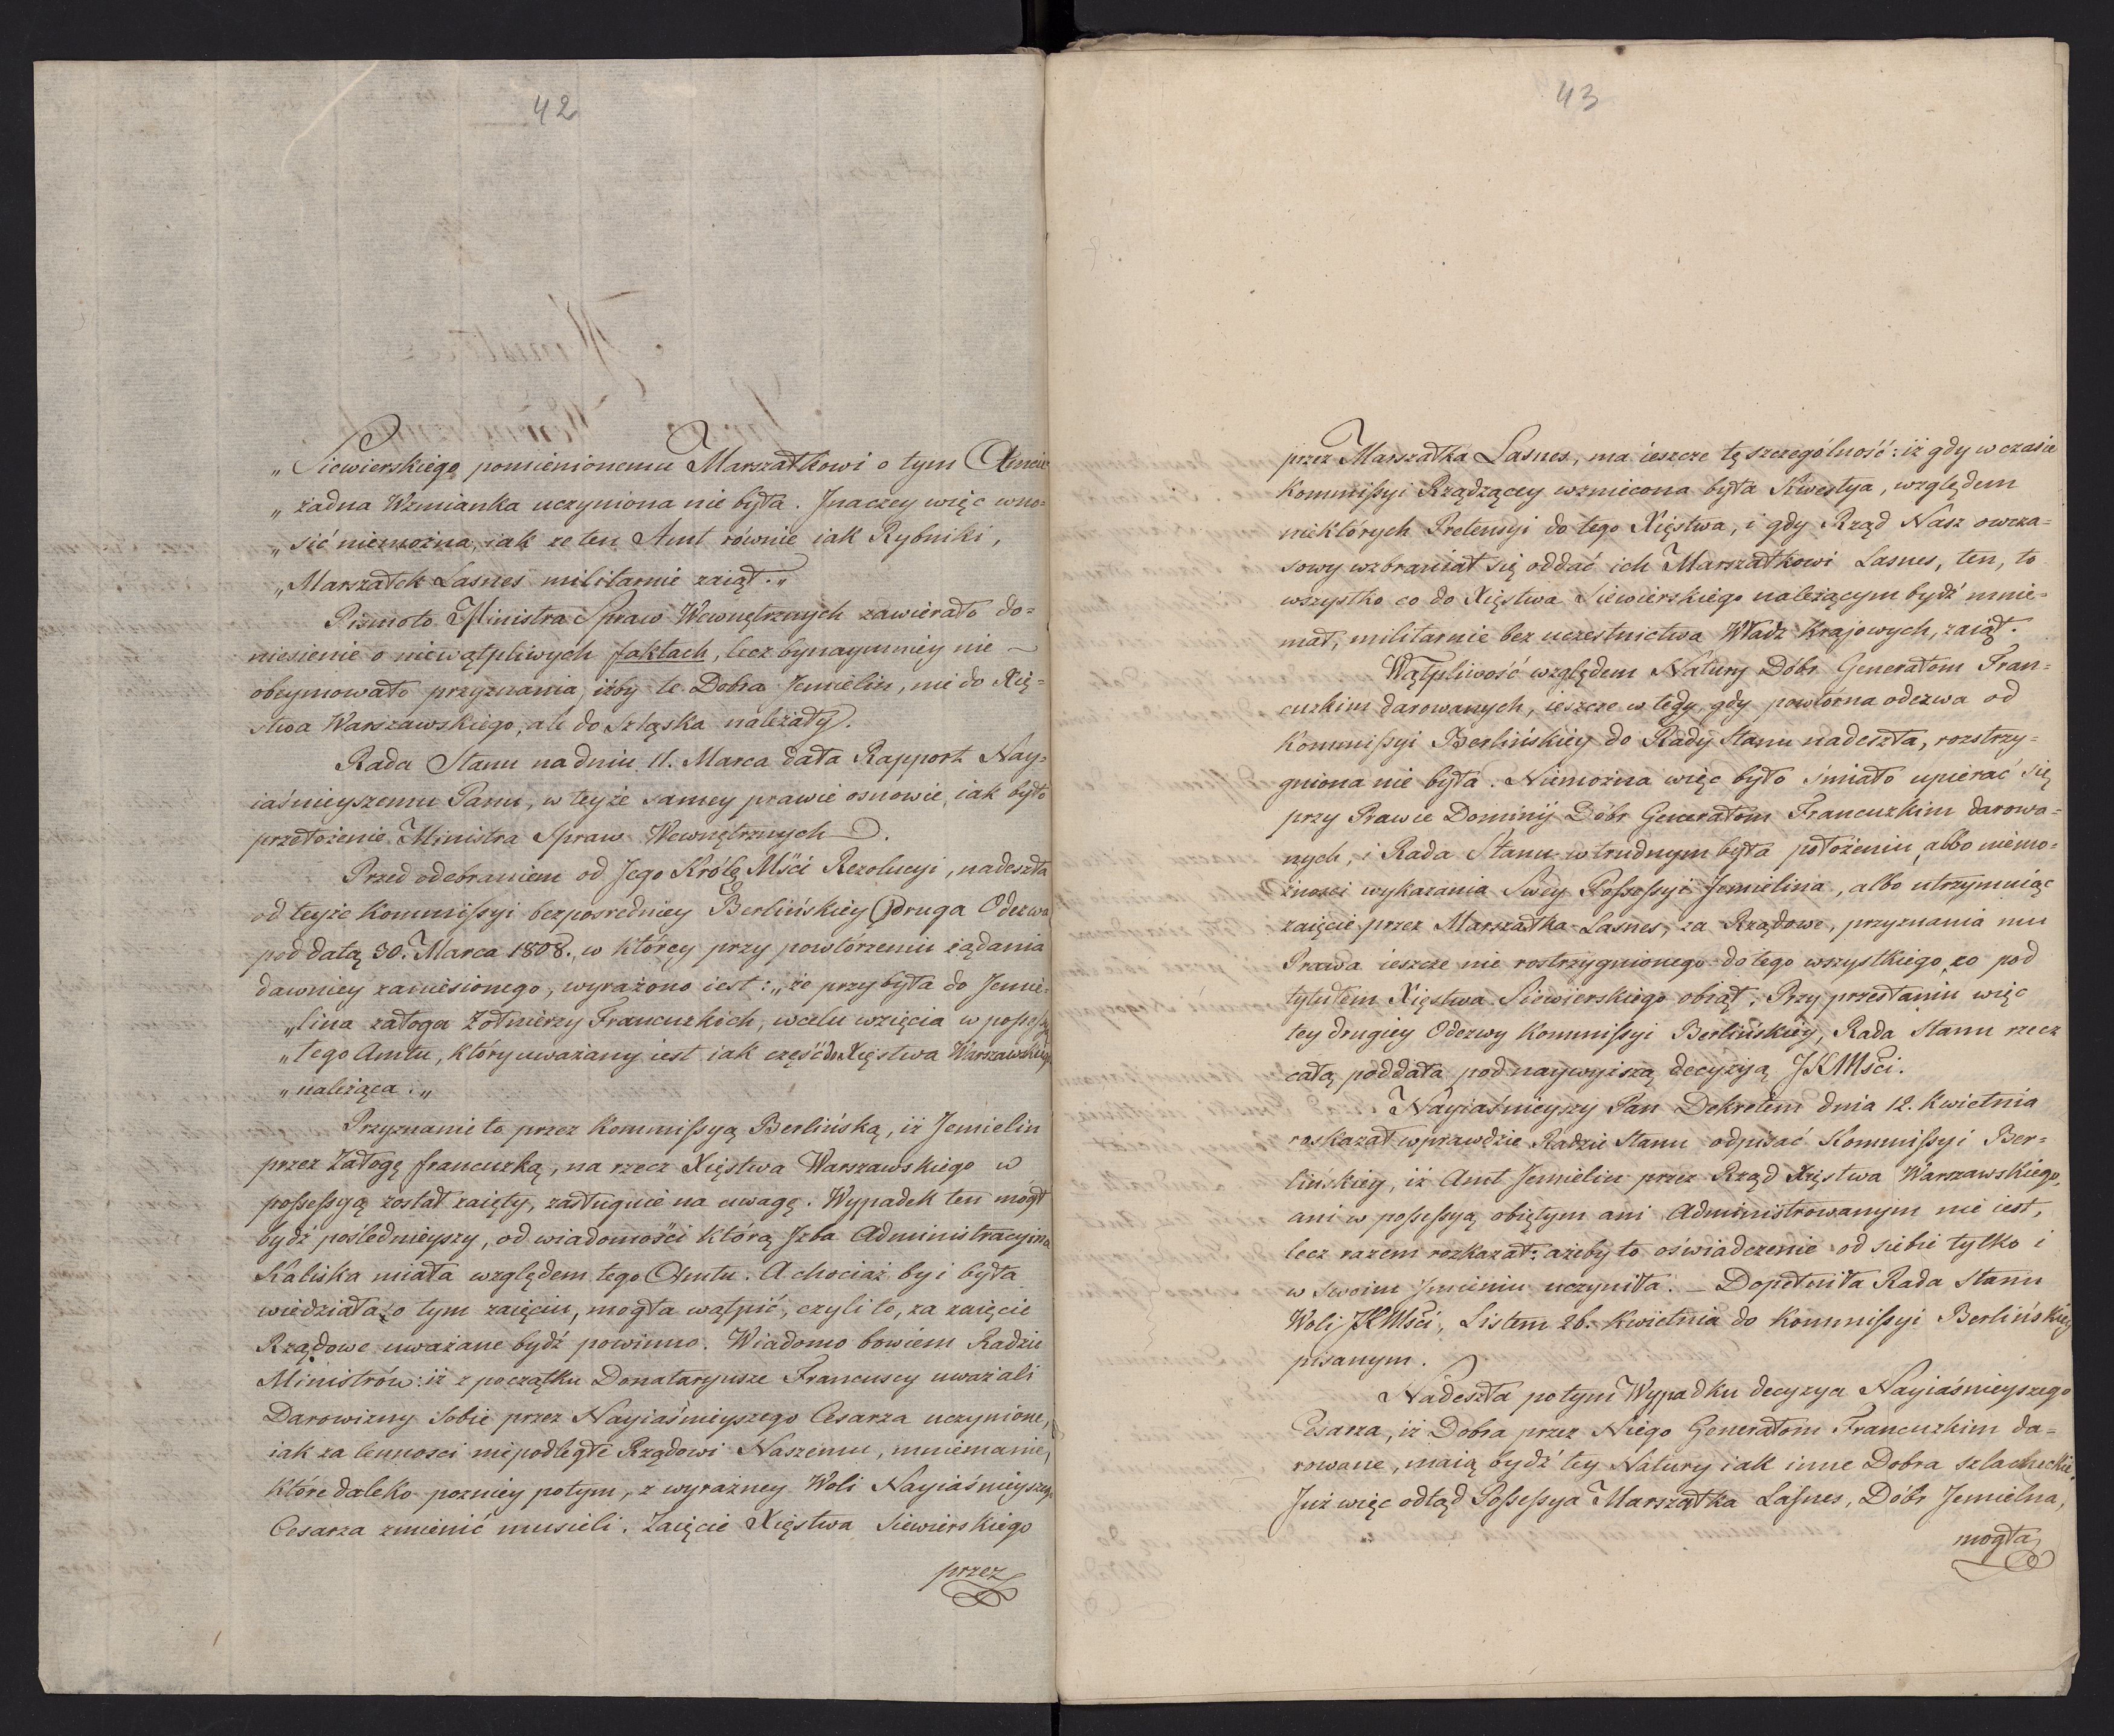 42
„Siewierskiego pomienionemu Marszałkowi o tym Amcie
„żadna Wzmianka uczyniona nie była. Jnaczey więc wno=
„sić niemożna, iak że ten Amt równie iak Rybniki,
„Marszałek Lasnes militarnie zaiął.„
Pismoto Ministra Spraw Wewnętrznych zawierało do=
niesienie o niewątpliwych faktach, lecz bynaymniey nie
obeymowało przyznania, iżby te Dobra Jemielin, nie do Xię=
stwa Warszawskiego, ale do Szląska należały.
Rada Stanu na dniu 11. Marca dała Rapport Nay=
iaśnieyszemu Panu, w teyże samey prawie osnowie, iak było
przełożenie Ministra Spraw Wewnętrznych.
Przed odebraniem od Jego Królę Mści Rezolucyi, nadeszła
od teyże Kommißyi bezposredniey Berlińskiey Druga Odezwa
pod datą 30. Marca 1808. w którey przy powtórzeniu żądania
dawniey zaniesionego, wyrażono iest: „że przybyła do Jemie=
„lina załoga Żołnierzy Francuzkich, w celu wzięcia w poßeßyą
„tego Amtu, który uważany iest iak część do Xięstwa Warszawskiego
„należąca.„
Przyznanie to przez Kommißyą Berlińską, iż Jemielin
przez Załogę francuzką, na rzecz Xięstwa Warszawskiego w
poßeßyą został zaięty, zasługuie na uwagę. Wypadek ten mógł
bydź poślednieyszy, od wiadomości którą Jzba Administracyina
Kaliska miała względem tego Amtu. A chociaż by i była
wiedziała o tym zaięciu, mogła wątpić, czyli to, za zaięcie
Rządowe uważane bydź powinno. Wiadomo bowiem Radzie
Ministrów: iż z początku Donataryusze Francuscy uważali
Darowizny sobie przez Nayiaśnieyszego Cesarza uczynione,
iak za lennosci niepodległe Rządowi Naszemu, mniemanie,
które daleko pozniey potym, z wyrażney Woli Nayiaśnieyszego
Cesarza zmienić musieli. Zaięcie Xięstwa Siewierskiego
przez
43
przez Marszałka Lasnes, ma ieszcze tę szczególność: iż gdy w czasie
Kommißyi Rządzącey wzniecona była Kwestya, względem
niektórych Pretensyi do tego Xięstwa, i gdy Rząd Nasz owcza=
sowy wzbraniał się oddać ich Marszałkowi Lasnes, ten, to
wszystko co do Xięstwa Siewierskiego należącym bydź mnie=
mał, militarnie bez uczestnictwa Władz Krajowych, zaiął.
Wątpliwość względem Natury Dóbr Generałom Fran=
cuzkim darowanych, ieszcze w tedy, gdy powtórna odezwa od
Kommißyi Berlińskiey do Rady Stanu nadeszła, rozstrzy=
gniona nie była. Niemożna więc było śmiało upierać się
przy Prawie Dominij Dóbr Generałom Francuzkim darowa=
nych, i Rada Stanu w trudnym była położeniu, albo niemo=
żności wykazania Swey Poßeßyi Jemielina, albo utrzymuiąc
zaięcie przez Marszałka Lasnes, za Rządowe, przyznania mu
Prawa ieszcze nie rostrzygnionego do tego wszystkiego, co pod
tytułem Xięstwa Siewierskiego obiął. Przy przesłaniu więc
tey drugiey Odezwy Kommißyi Berlińskiey, Rada Stanu rzecz
całą poddała pod naywyiszą decyzyą JKMści.
Nayiaśnieyszy Pan Dekretem dnia 12. Kwietnia
roskazał wprawdzie Radzie Stanu odpisać Kommißyi Ber=
lińskiey, iż Amt Jemielin przez Rząd Xięstwa Warszawskiego,
ani w poßeßyą obiętym ani Administrowanym nie iest,
lecz razem rozkazał: ażeby to oświadczenie od siebie tylko i
w Swoim Jmieniu uczyniła. – Dopełniła Rada Stanu
Woli JKMści, Listem 26. Kwietnia do Kommißyi Berlińskiey
pisanym.
Nadeszła potym Wypadku decyzya Nayiaśnieyszego
Cesarza, iż Dobra przez Niego Generałom Francuzkim da=
rowane, maią bydź tey Natury iak inne Dobra szlacheckie.
Już więc odtąd Poßeßya Marszałka Laßnes, Dóbr Jemielna,
mogła